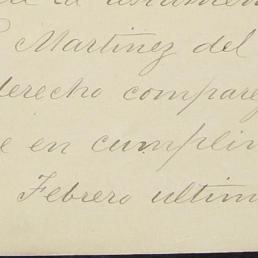 Martinez del
derecho compare
e en cumplim
Febrero ultim